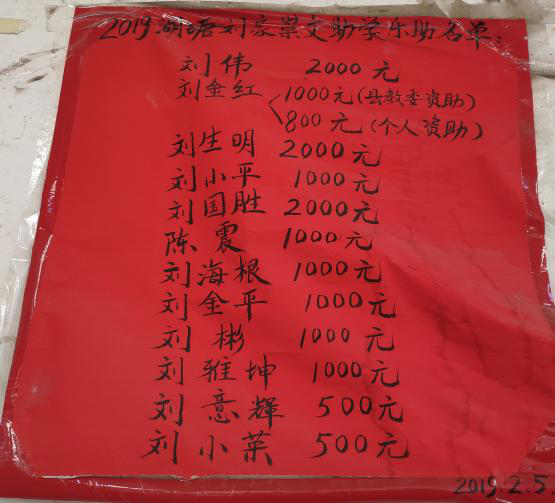 2019湖塘刘家崇文助学乐助名单：
刘伟 2000元
刘金红 1000元(县教委资助)
800元(个人资助)
刘生明 2000元
刘小平 1000元
刘国胜 2000元
陈震 1000元
刘海根 1000元
刘金平 1000元
刘彬 1000元
刘雅坤 1000元
刘意辉 500元
刘小英 500元
2019.2.5